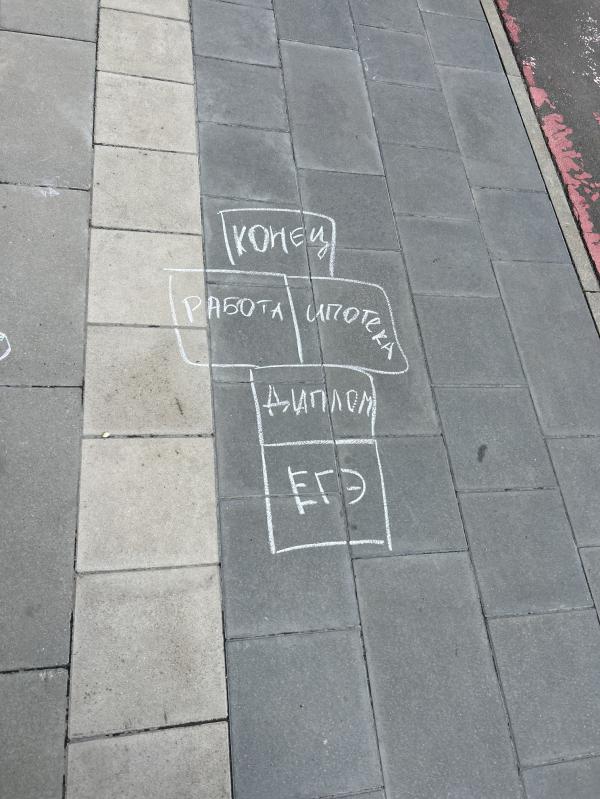 КОНЕЦ
РАБОТА ИПОТЕКА
ДИПЛОМ
ЕГЭ